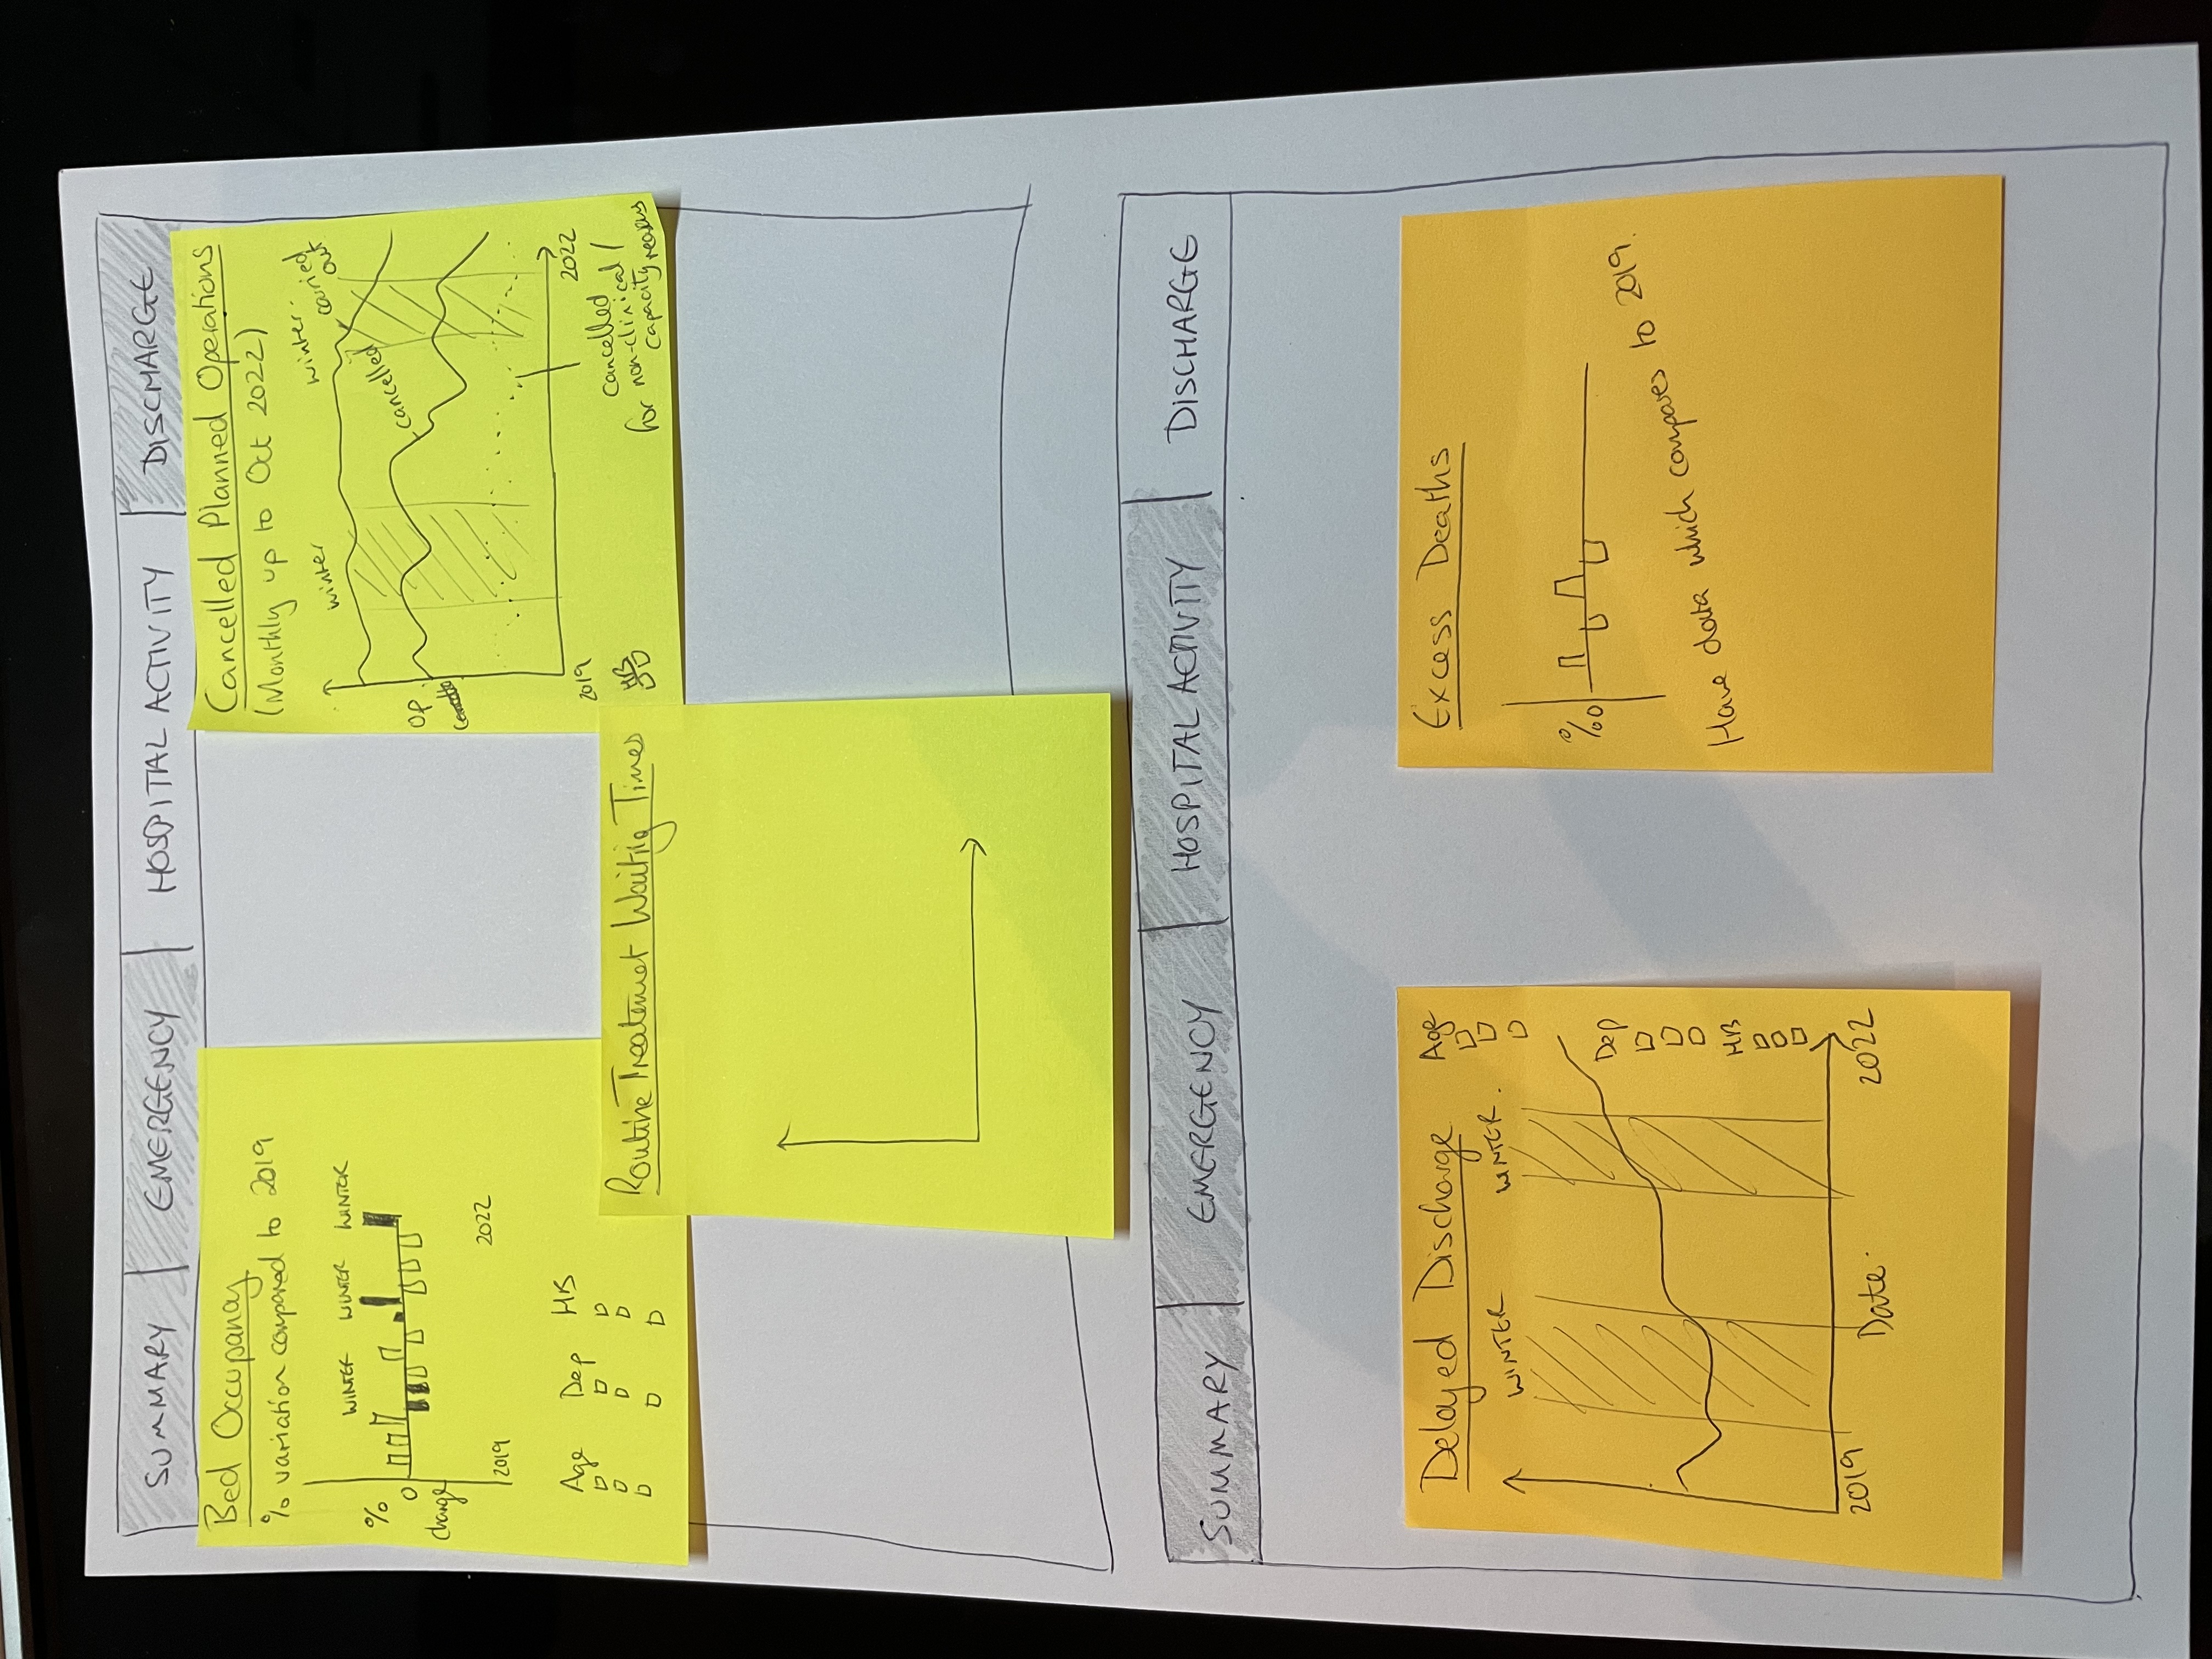 SUMMARY
EMERGENCY
HOSPITAL ACTIVITY
DISCHARGE
Bed Occupancy
% variation compared to 2019
WINTER WINTER WINTER
%
0
change
2019
2022
Age Dep HB
Cancelled Planned Operations
(Monthly up to Oct 2022)
winter
winter.
carried
out
cancelled
Op
2019
2022
HB
cancelled
for non-clinical /
capacity reasons
Routine Treatemet Waitig Times
SUMMARY
EMERGENCY
HOSPITAL ACTIVITY
DISCHARGE
Delayed Discharge
WINTER
WINTER.
Age
Dep
HB
2019
Date.
2022
Excess Deaths
%0
Have data which compares to 2019.